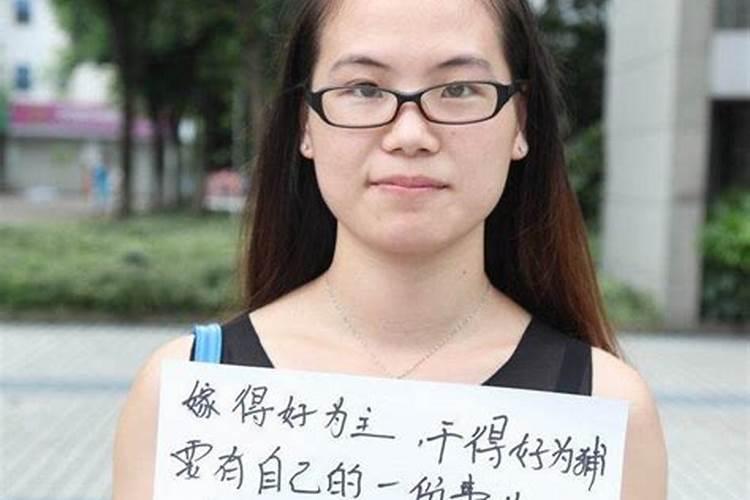 嫁得好为主,干得好为辅
要有自己的一份事业